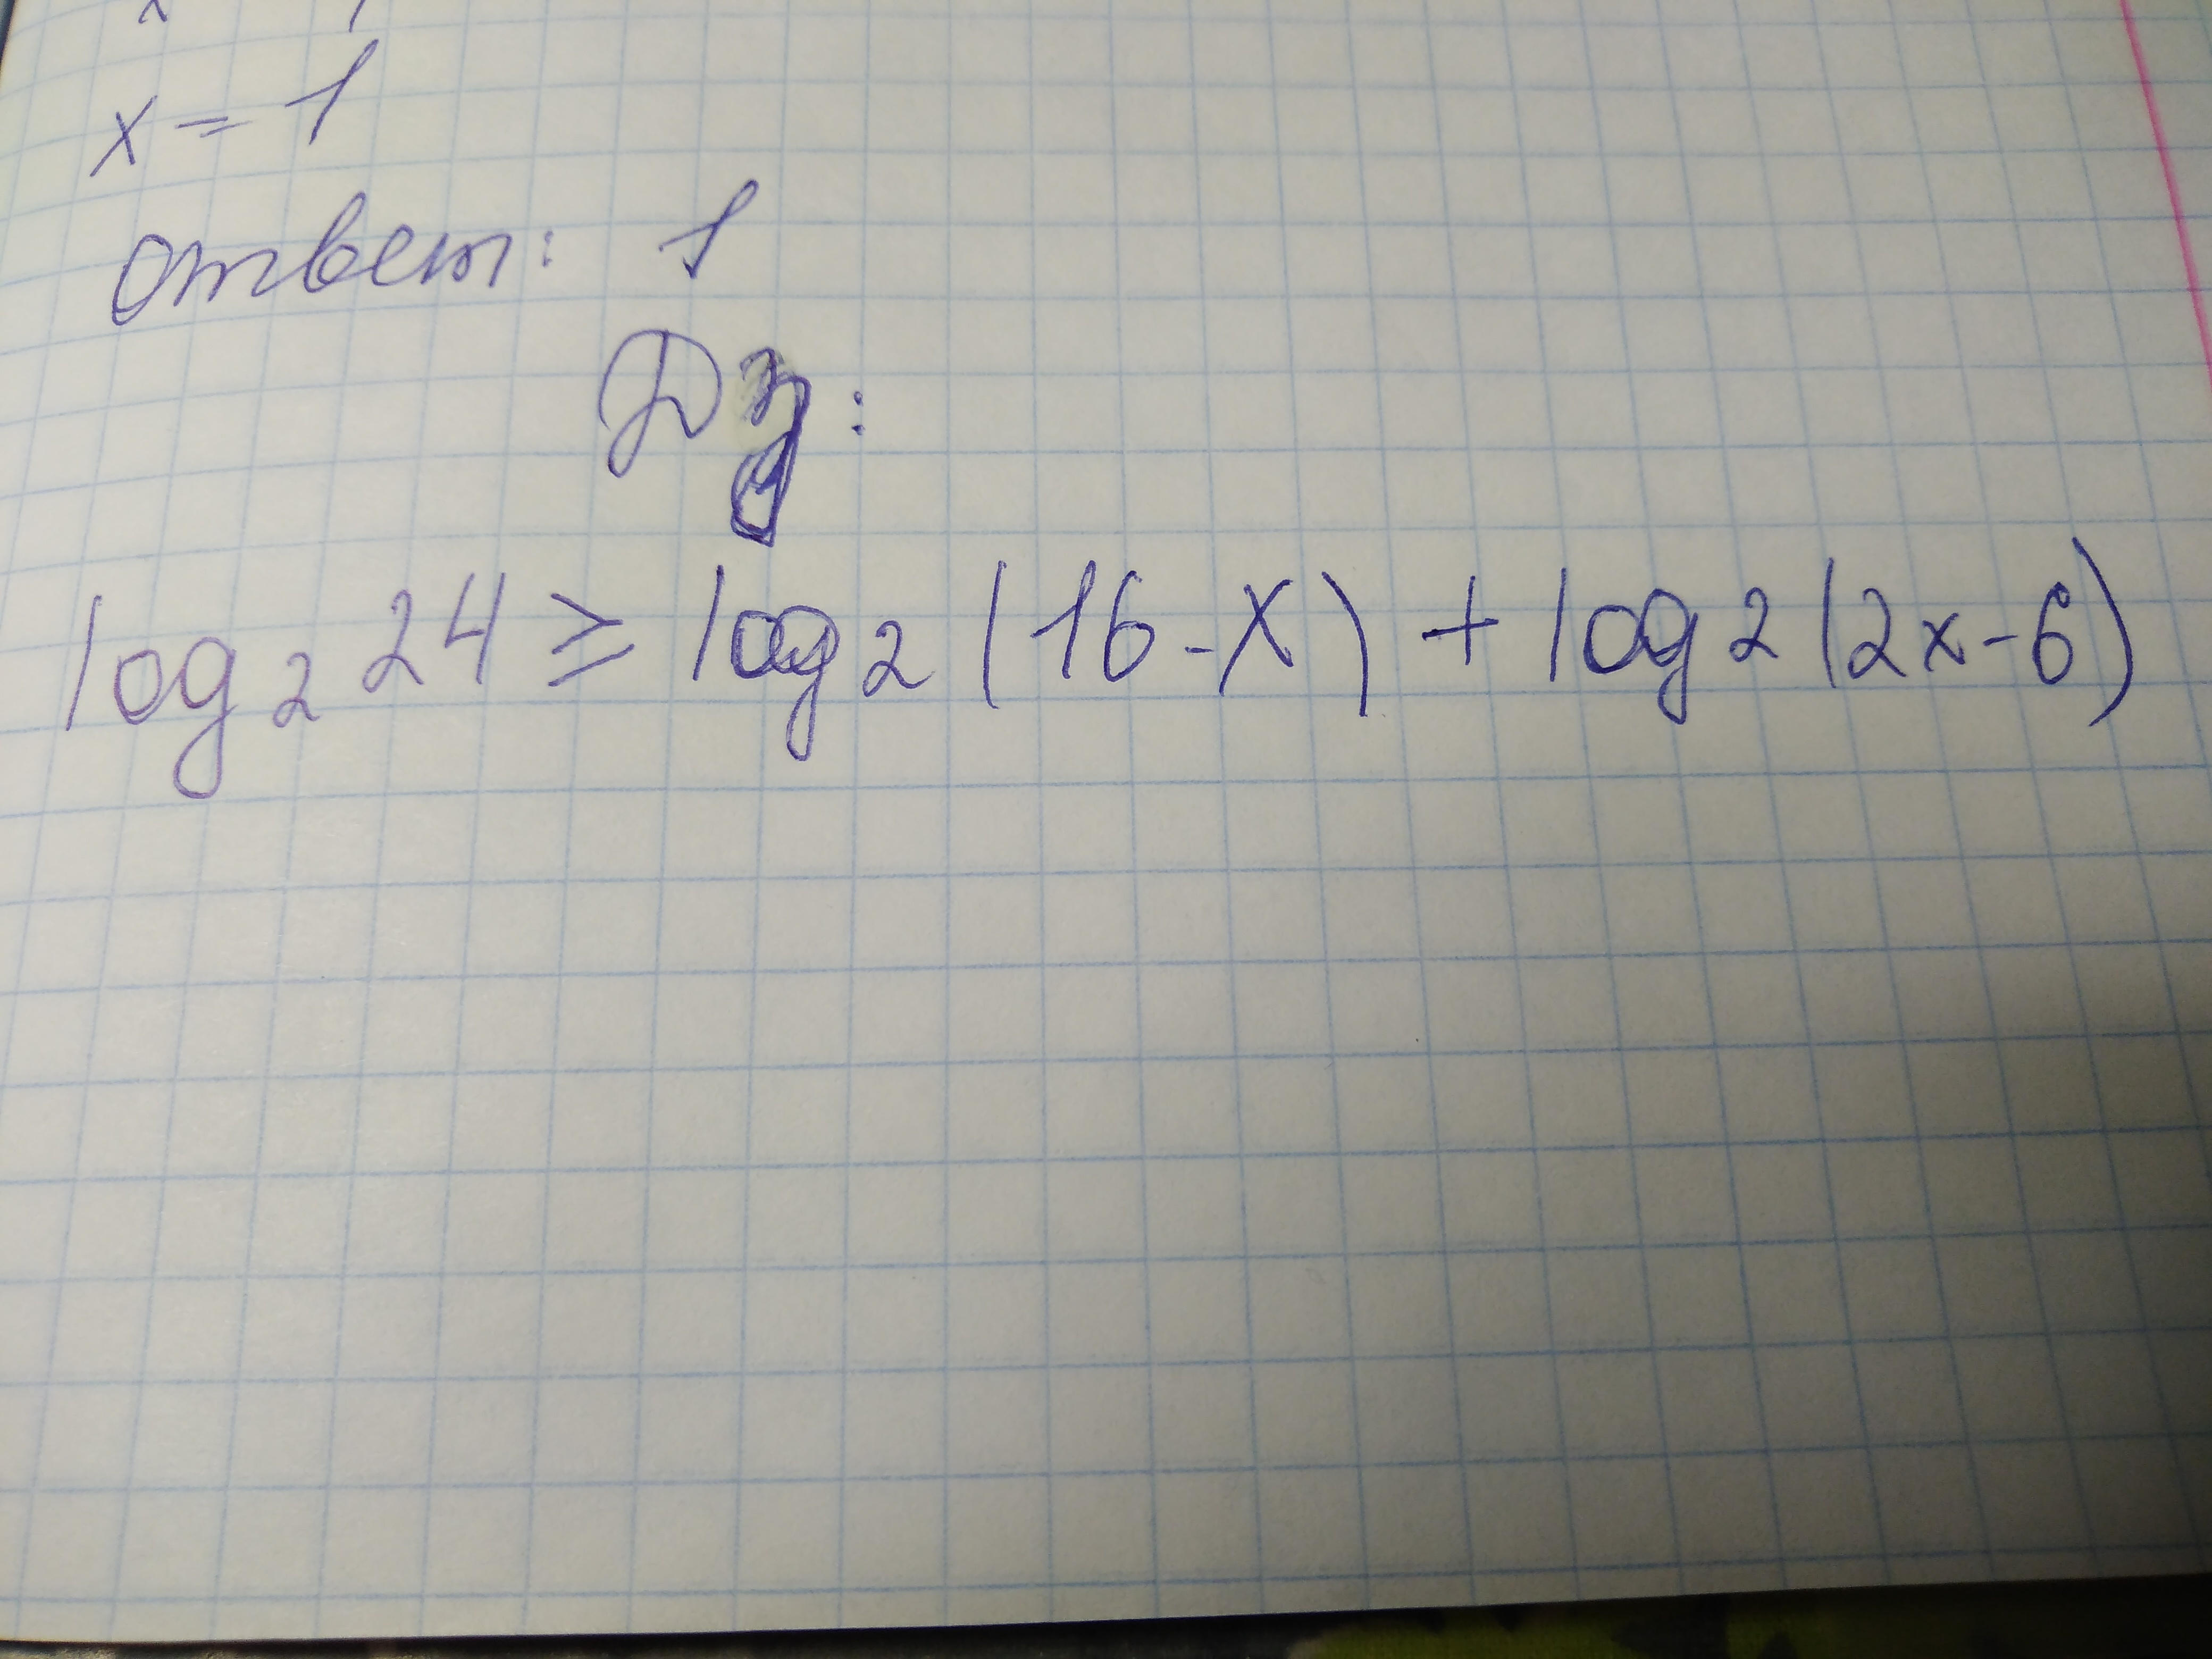 x = 1
ответ: 1
Дз:
log₂ 24 ≥ log₂ (16 - x) + log 2 (2x - 6)